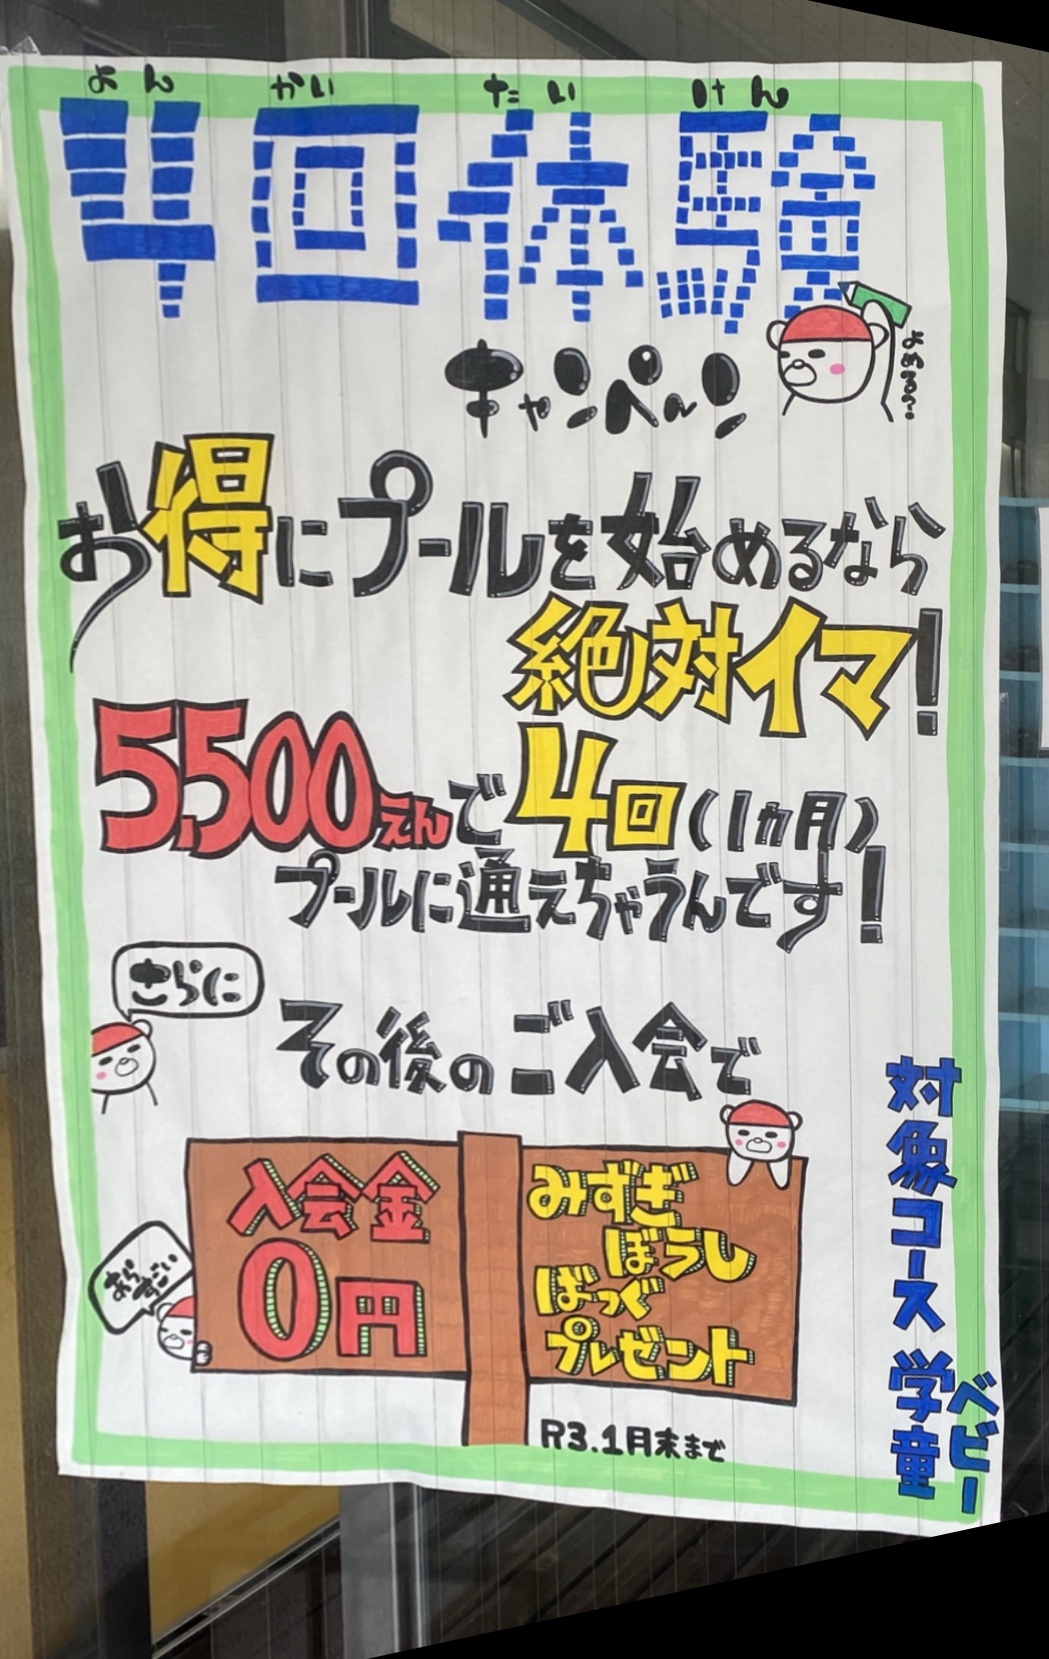 よん かい たい けん
4回体験
キャンペーン
よめる〜?
お得にプールを始めるなら
絶対イマ!
5,500えんで4回(1ヵ月)
プールに通えちゃうんです!
さらに
その後のご入会で
入会金
0円
みずぎ
ぼうし
ばっぐ
プレゼント
あら
すごい
R3.1月末まで
対象コース 学童
ベビー